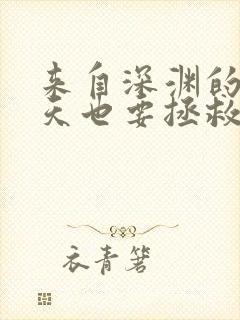 来自深渊的
天也要拯救
衣青箬